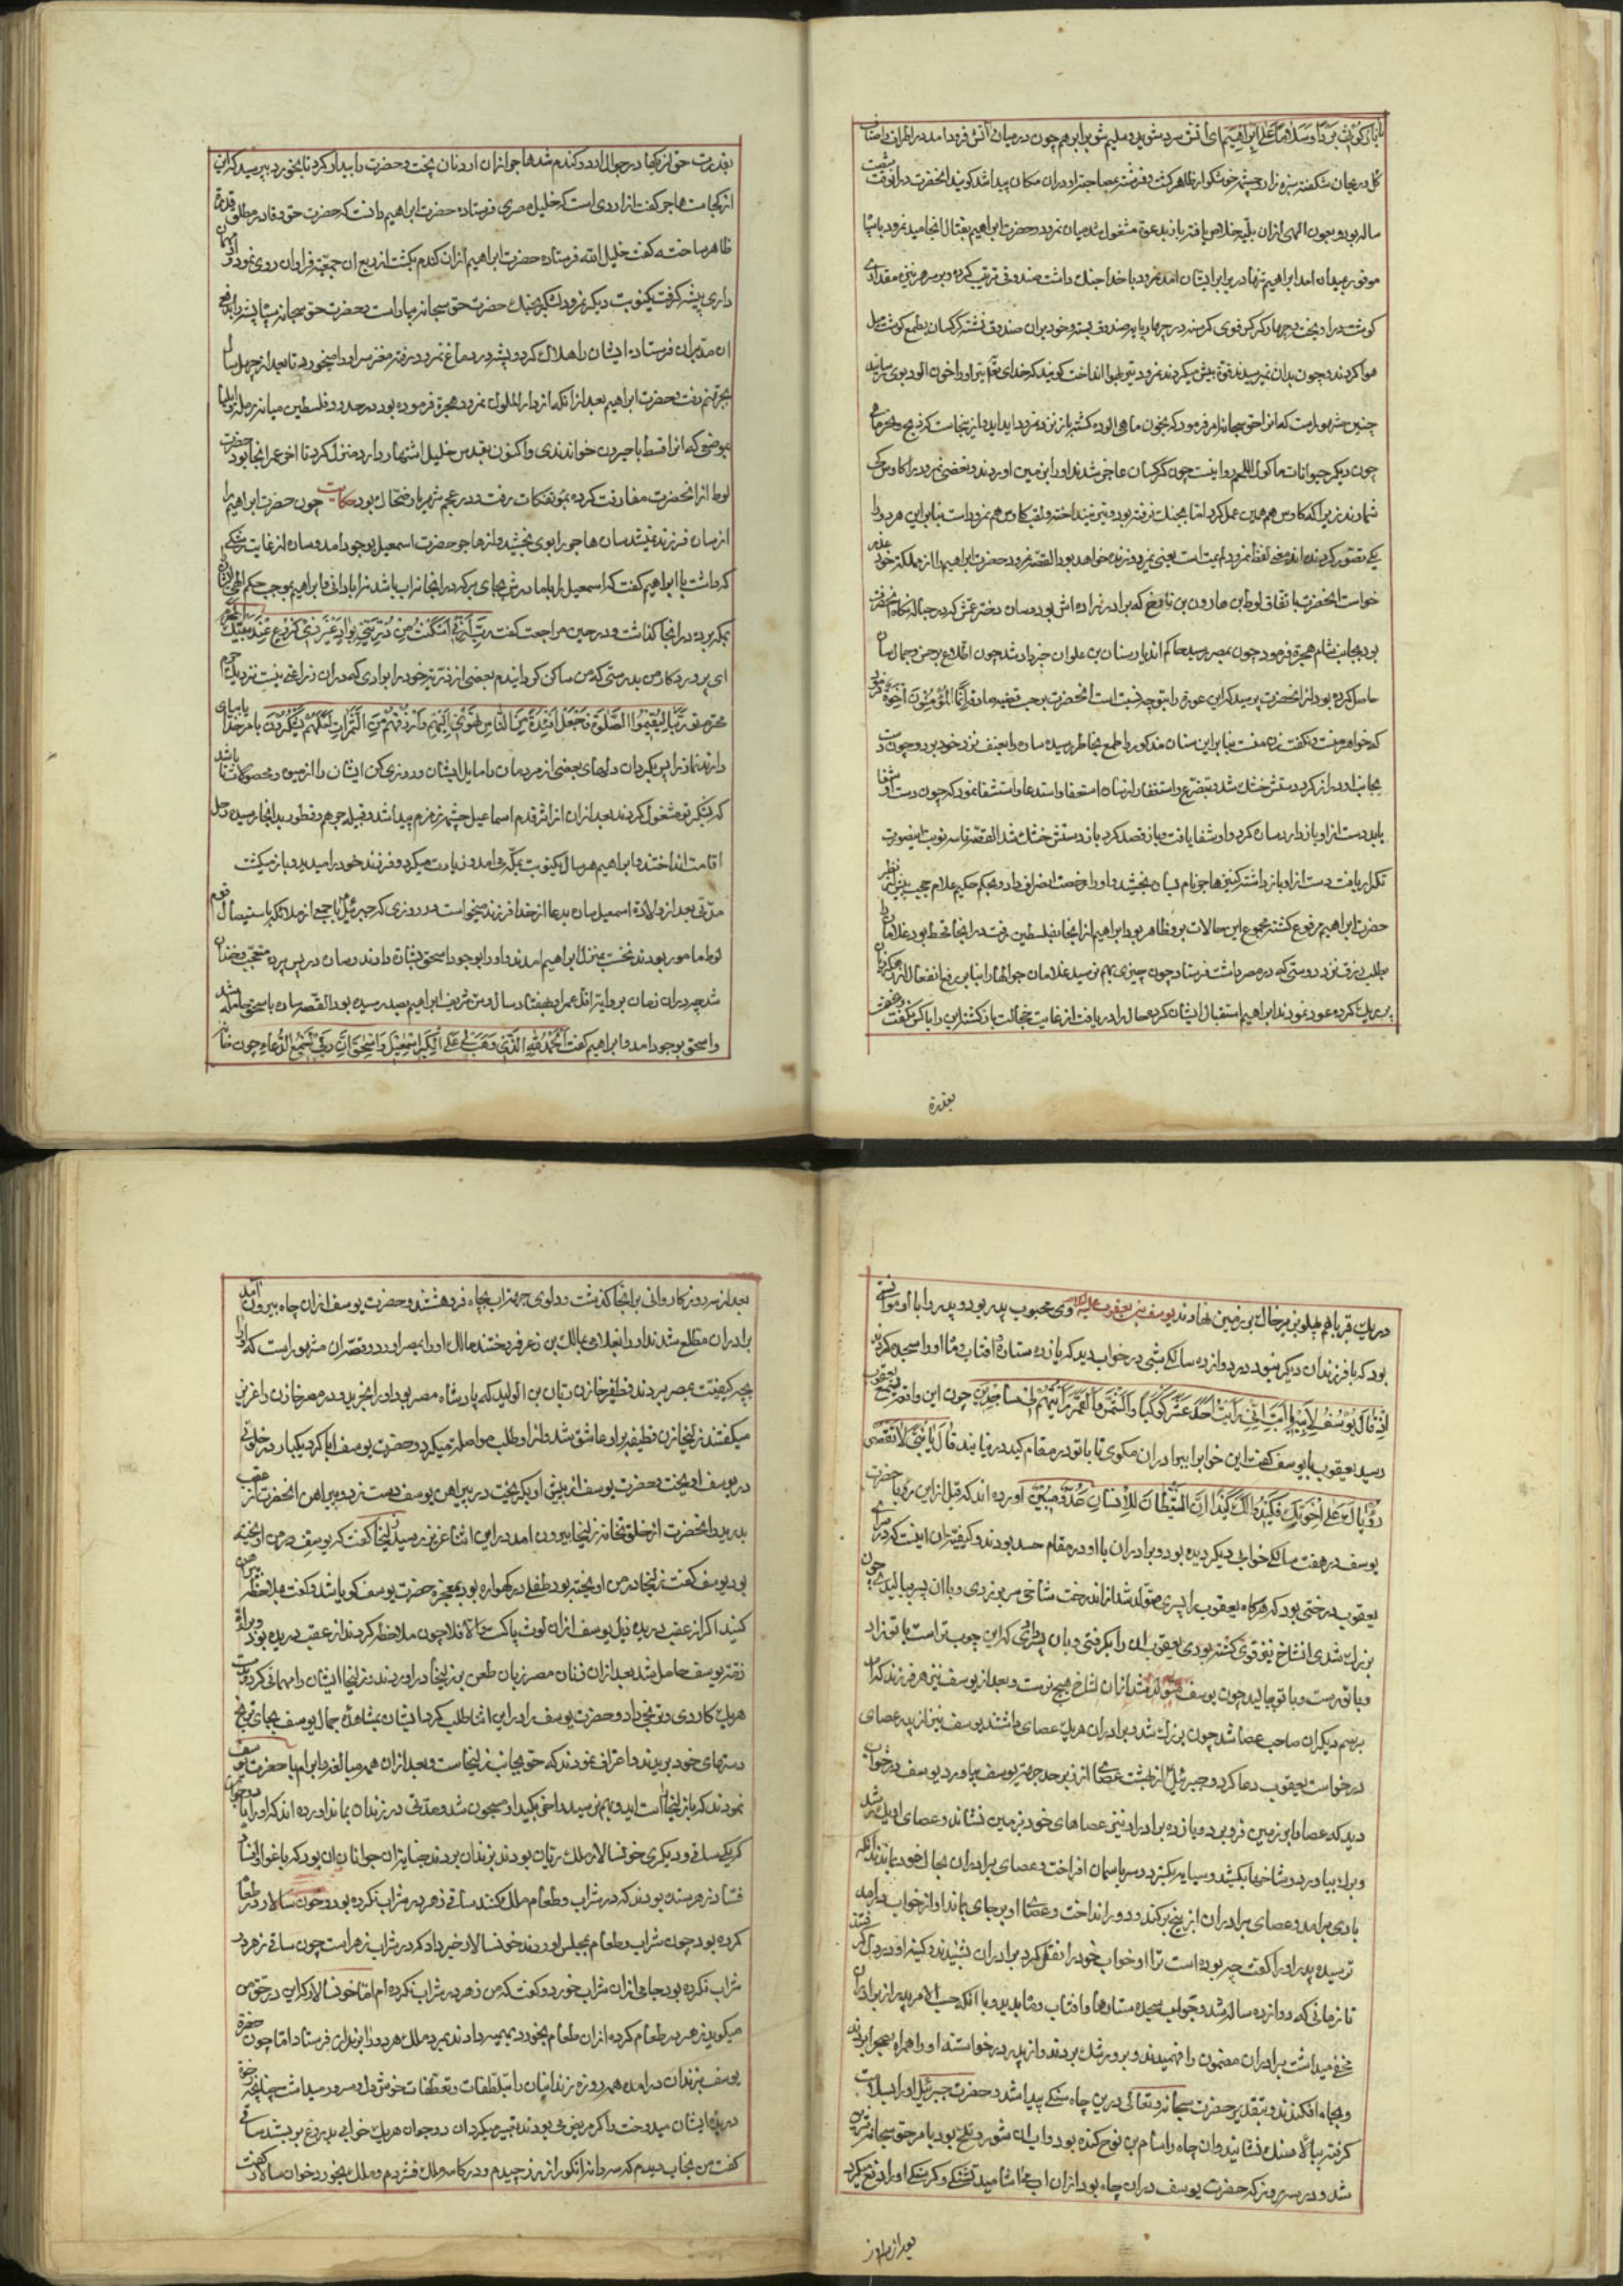 یا نار کونی بردا و سلاما علی ابراهیم ای اتش سرد شو و سلیم شو بر ابرهیم چون در میان اتش فرود امد در اطراف
کل و ریحان شکفته سبزه زار و چشمه خوشکوار ظاهر کشت و فرشته بمصاحبت او در ان مکان پیدا شد کویند انحضرت در انوقت
ساله بود و بعون الهی ازان بلیه خلاص یافته باز بدعوة مشغول شد میان نمرود و حضرت ابراهیم بقتال انجامید نمرود با سپاه
موفور بمیدان امد ابراهیم تنها در برابر ایشان امد نمرود با خدا جنک داشت صندوقی ترتیب کرده و بر سر هر نیزه مقداری
کوشت در اویخت و چهار کرکس قوی کرسنه در چهار پایه صندوق بسته و خود بر ان صندوق نشسته کرکسان بطمع کوشت میل
هوا کردند و چون بدان نمیرسیدند قوة بیش میکردند نمرود تیر بهوا انداخت کویند که خدای تعالی تیر او را خون الود بوی رسانید
چنین مشهور است که انرا حق سبحانه امر فرمود که بخون ماهی الوده کشته باز نزد نمرود اید
چون دیکر حیوانات ماکول اللحم روایتست چون کرکسان عاجز شدند او را بزمین اوردند و بعضی نمرود را کاوس کی
شمارند زیرا که کاوس هم همین عمل کرد اما بجنک نرفته بود و تیر نینداخته و لقب کاوس هم نمرود است بنابر این هر دو را
یکی تصور کردند لفظ نمرود یعنی نمرود زنده خواهد بود القصه نمرود حضرت ابراهیم را از مملکت خود
خواست انحضرت باتفاق لوط بن هارون بن تارخ که برادر زاده اش بود و ساره دختر عمش که در حباله نکاح انحضرت
بود بجانب شام هجرة فرمود چون بمصر رسید حاکم اندیار سنان بن علوان خبردار شد چون اطلاع بر حسن و جمال ساره
حاصل کرده بود از انحضرت پرسید که این عورة را بتو چه نسبت است انحضرت بر حسب قضیه صادقه انما المؤمنون اخوة فرمود
که خواهر منست و نکفت زن منست بنابر این سنان مذکور را طمع بخاطر رسیده ساره را بعنف نزد خود برد و چون دست
بجانب او دراز کرد دستش خشک شد و بتضرع و استغفار از ساره استدعا و استشفا نمود که چون دست او شفا
یابد دست از او باز دارد ساره دعا کرد و او شفا یافت و باز قصد کرد باز دستش خشک شد القصه تا سه نوبت اینصورت
تکرار یافت دست از او باز داشته کنیزی هاجر نام بساره بخشید و او را رخصت انصراف داد و بحکم حکیم علام حجب از پیش نظر
حضرت ابراهیم مرفوع کشته مجموع این حالات برو ظاهر بود ابراهیم از انجا بفلسطین رفت در انجا قحط بود غلامان را
بطلب رزق نزد دوستی که در مصر داشت فرستاد چون چیزی بهم نرسید غلامان جوالها را بنابر رفع انفعال از ریک
پر کرده عود نمودند ابراهیم استقبال ایشان کرد حال را دریافت از غایت خجالت باز کشته این را با کس نکفت
بقدرة
بقدرت حق ان ریکها در جوال ارد و کندم شد هاجر ازان ارد نان پخت و حضرت را بیدار کرد تا بخورد پرسید که این
از کجاست هاجر کفت از اردی است که خلیل مصری فرستاده حضرت ابراهیم دانست که حضرت حق و قادر مطلق
ظاهر ساخته کفت خلیل الله فرستاده حضرت ابراهیم ازان کندم بکشت از ریع ان جمعیت فراوان روی نمود و مهمان
داری پیشه کرفت یکنوبت دیکر نمرود لشکر بجنک حضرت حق سبحانه بیاراست و حضرت حق سبحانه سپاه پشه را بدفع
ان مدبران فرستاده ایشان را هلاک کرد و پشه در دماغ نمرود رفته مغز سر او را میخورد تا بعد از چهل سال
بجهنم رفت و حضرت ابراهیم بعد از انکه از دار الملک نمرود هجرة فرموده بود در حدود فلسطین میانه رمله و ایلیا
بموضعی که انرا قسط یا جیرون خواندندی و اکنون بقدس خلیل اشتهار دارد منزل کرد تا اخر عمر انجا بود و حضرت
لوط از انحضرت مفارقت کرده بمؤتفکات رفت و در عجم شهریار ضحاک بود حکایت چون حضرت ابراهیم را
از ساره فرزند نمیشد ساره هاجر را بوی بخشید و از هاجر حضرت اسمعیل بوجود امد و ساره از غایت رشکی
که داشت با ابراهیم کفت که اسمعیل را با مادرش بجای برکه در انجا نه اب باشد نه ابادانی و ابراهیم بموجب حکم الهی
بمکه برده در انجا کذاشت و در حین مراجعت کفت رب انی اسکنت من ذریتی بواد غیر ذی زرع عند بیتک المحرم
ای پروردکار من بدرستی که من ساکن کردانیدم بعضی از ذریة خود را بوادی که در ان زراعتی نیست نزدیک حرم
محترم تو ربنا لیقیموا الصلوة فاجعل افئدة من الناس تهوی الیهم و ارزقهم من الثمرات لعلهم یشکرون بار خدایا
دارند نماز را پس بکردان دلهای بعضی از مردمان را مایل ایشان و روزی کن ایشان را از میوه و محصولات تا باشد
که بشکر تو مشغول کردند بعد ازان از اثر قدم اسماعیل چشمه زمزم پیدا شد و قبیله جرهم و قطورا بدانجا رسیده رحل
اقامت انداختند و ابراهیم هر سال یکنوبت بمکه می امد و زیارت میکرد و فرزند خود را میدید و باز میکشت
مدتی بعد از ولادة اسمعیل ساره بدعا از خدا فرزند میخواست در روزی که جبرئیل با جمعی از ملائکه باستیصال قوم
لوط مامور بودند نخست بمنزل ابراهیم امدند و او را بوجود اسحق بشارة دادند و ساره در پس پرده متعجب و خندان
شد چه در ان زمان بروایة اقل عمر او بهفتاد سال و سن شریف ابراهیم بصد رسیده بود القصه ساره باسحق حامله شد
و اسحق بوجود امد و ابراهیم کفت الحمد لله الذی وهب لی علی الکبر اسمعیل و اسحق ان ربی لسمیع الدعاء چون
در یک قبر با هم پهلو بزیر خاک بر زمین نهادند یوسف بن یعقوب علیه السلام وی محبوب پدر بود و پدر را با او انسی
بود که با فرزندان دیکر نبود در دوازده سالکی شبی در خواب دید که یازده ستاره و افتاب و ماه او را سجده کردند
اذ قال یوسف لابیه یا ابت انی رایت احد عشر کوکبا و الشمس و القمر رایتهم لی ساجدین چون این واقعه بسمع یعقوب
رسید یعقوب با یوسف کفت این خواب را ببرادران مکوی تا با تو در مقام کید در نیایند قال یا بنی لا تقصص
رؤیاک علی اخوتک فیکیدوا لک کیدا ان الشیطان للانسان عدو مبین اورده اند که قبل از این رؤیا حضرت
یوسف در هفت سالکی خوابی دیکر دیده بود و برادران با او در مقام حسد بودند و کیفیت ان اینست که در سرای
یعقوب درختی بود که هرکاه یعقوب را پسری متولد شدی از اندرخت شاخی سر بر زدی و با ان پسر میبالیدی چون
بزرک شدی انشاخ نیز قوی کشته بودی یعقوب ان را بکرفتی و بان پسر دادی که این چوب تراست با تو زاد
و با تو رست و با تو بالید چون یوسف متولد شد ازان شاخ هیچ نرست و بعد از یوسف نیز هر فرزند که امد
برسم دیکران صاحب عصا شد چون بزرک شد و برادران هریک عصای داشتند یوسف نیز از پدر عصای
درخواست یعقوب دعا کرد و جبرئیل از بهشت عصای از زبرجد جهة یوسف بیاورد یوسف در خواب
دید که عصا را بر زمین فرو برد و یازده برادر او نیز عصاهای خود بزمین نشاند و عصای او بزرک شد
و برک بیاورد و شاخها بکشید و سایه بکسترد و سر باسمان افراخت و عصای برادران بحال خود بماندند تا انکه
بادی برامد و عصای برادران از بیخ برکند و دور انداخت و عصای او بر جای بماند او از خواب درامد
ترسیده پدر او را کفت چه بوده است ترا او خواب خود را نقل کرد برادران شنیدند و کینه او در دل کرفتند
تا زمانی که دوازده ساله شد و خواب سجده ستارها و افتاب و ماه بدید و با انکه حسب الامر پدر از برادران
مخفی میداشت برادران مضمون را فهمیدند و برو رشک بردند و از پدر درخواسته او را همراه بصحرا بردند
و بچاه افکندند و بتقدیر حضرت سبحانه و تعالی در بن چاه سنکی پیدا شد و حضرت جبرئیل او را بسلامت
کرفته بر بالا سنک نشانید و ان چاه را سام بن نوح کنده بود و اب ان شور و تلخ بود بامر حق سبحانه شیرین
شد و در سه روز که حضرت یوسف در ان چاه بود ازان اب می اشامید تشنکی و کرسنکی او را دفع میکرد
بعد از سه روز
بعد از سه روز کاروانی بر انجا کذشت و دلوی جهة اب بچاه فرو هشتند و حضرت یوسف ازان چاه بیرون امد
برادران مطلع شدند او را بغلامی بمالک بن زعر فروختند مالک او را بمصر اورد و قصه ان مشهور است که او را
بچه کیفیت بمصر بردند قطیفر خازن ریان بن الولید که پادشاه مصر بود او را بخرید و در مصر خازن را عزیز
میکفتند زلیخا زن قطیفر بر او عاشق شد و از او طلب مواصلت میکرد و حضرت یوسف ابا کرد یکبار در خلوتی
در یوسف اویخت و حضرت یوسف از پیش او بکریخت در پیراهن یوسف دست زد و پیراهن انحضرت از عقب
بدرید و انحضرت از خلوتخانه زلیخا بیرون امد در این اثنا عزیز رسید زلیخا کفت که یوسف در من اویخته
بود یوسف کفت زلیخا در من اویخته بود طفلی در کهواره بود بمعجزه حضرت یوسف کویا شد و کفت ملاحظه پیراهن
کنید اکر از عقب دریده ذیل یوسف ازان لوث پاکست والا فلا چون ملاحظه کردند از عقب دریده بود و براة
ذمة یوسف حاصل شد بعد ازان زنان مصر زبان طعن بر زلیخا دراوردند و زلیخا ایشان را مهمانی کرد و بدست
هریک کاردی و ترنجی داد و حضرت یوسف را در این اثنا طلب کرد ایشان بمشاهده جمال یوسف بجای ترنج
دستهای خود بریدند و اعتراف نمودند که حق بجانب زلیخاست و بعد ازان همه مبالغه و ابرام با حضرت یوسف
نمودند که با زلیخا و بهم نرسید و اخر بکید او مسجون شد و مدتی در زندان بماند اورده اند که او را با دو جوان
که یکی ساقی و دیکری خوانسالار ملک ریان بودند بزندان بردند جنایة ان جوانان ان بود که باغوای اهل
فساد زهر ستده بودند که در شراب و طعام ملک کنند ساقی زهر در شراب نکرده بود و خوانسالار در طعام
کرده بود چون شراب و طعام بمجلس اوردند خوانسالار خبر داد که در شراب زهر است چون ساقی زهر در
شراب نکرده بود جامی ازان شراب خورد و کفت که من زهر در شراب نکرده ام اما خوانسالار که این در حق من
میکوید زهر در طعام کرده ازان طعام بخورد بهیمه دادند بمرد ملک هر دو را بزندان فرستاد اما چون حضرة
یوسف بزندان درامد همه روزه زندانیان را بتلطفات و تعطفات خوشدل و مسرور میداشت چنانچه خرقه
دریده ایشان میدوخت و اکر مریض می بودند تعهد میکرد ان دو جوان هریک خوابی بدروغ بر بستند ساقی
کفت من بخواب دیدم که سه دانه انکور از رز چیدم و در کاسه ملک فشردم و ملک بخورد و خوانسالار کفت